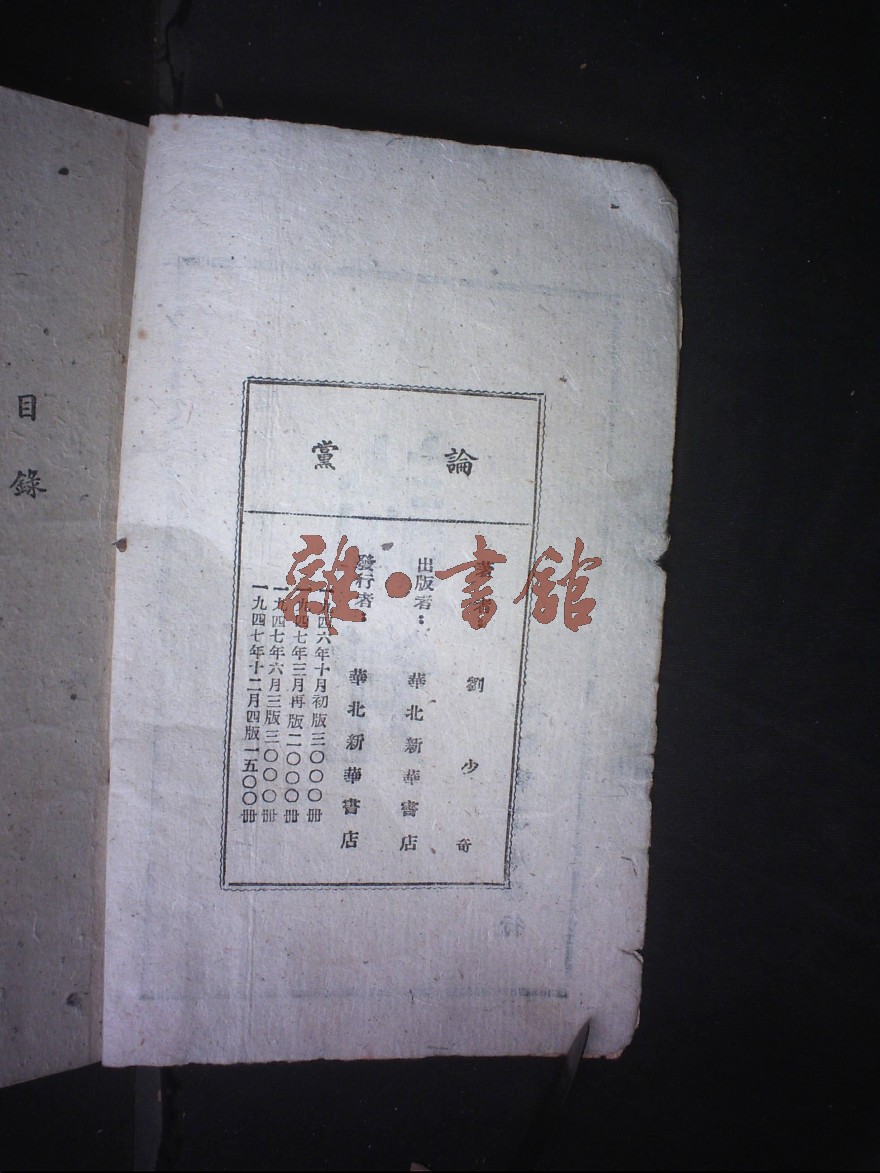 論黨
著者：劉少奇
出版者：華北新華書店
發行者：華北新華書店
一九四六年十月初版三〇〇〇册
一九四七年三月再版二〇〇〇册
一九四七年六月三版三〇〇〇册
一九四七年十二月四版一五〇〇册
目錄
雜·書館